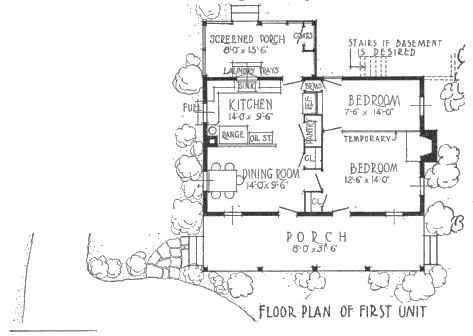 SCREENED PORCH
8'-0" x 15'-6"
COATS
STAIRS IF BASEMENT
IS DESIRED
LAUNDRY TRAYS
SINK
BRMS
FUEL
KITCHEN
14'-0" x 9'-6"
REF.
BEDROOM
7'-6" x 14'-0"
RANGE
OIL ST.
PANTRY
TEMPORARY
CL.
BEDROOM
12'-6" x 14'-0"
DINING ROOM
14'-0" x 9'-6"
CL.
PORCH
8'-0" x 31'-6"
FLOOR PLAN OF FIRST UNIT